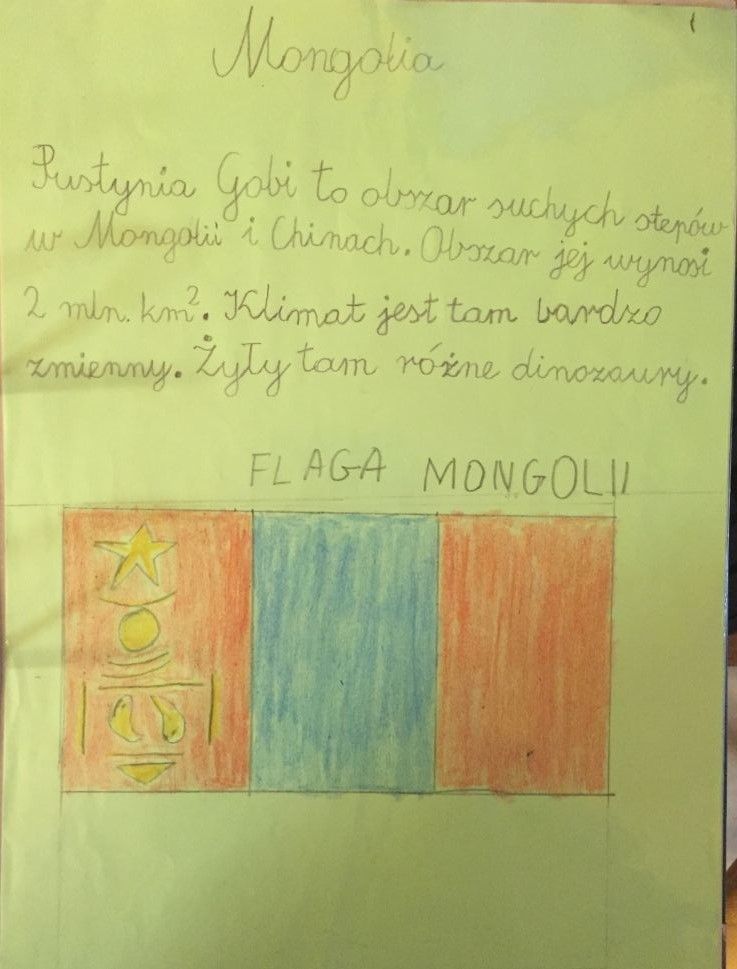 Mongolia
Pustynia Gobi to obszar suchych stepów
w Mongolii i Chinach. Obszar jej wynosi
2 mln. km². Klimat jest tam bardzo
zmienny. Żyły tam różne dinozaury.
FLAGA MONGOLII